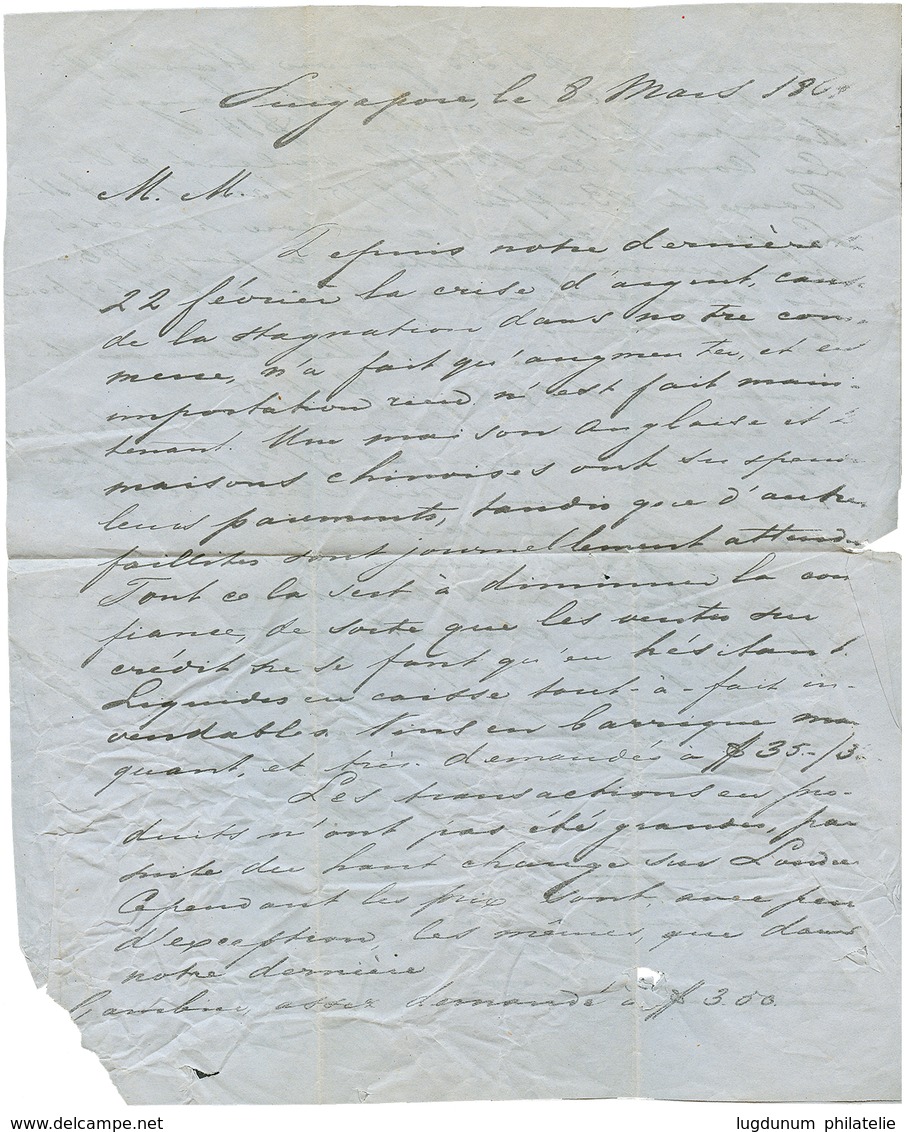 Singapore, le 8 Mars 186
M. M.
Depuis notre dernière
22 février la crise d'argent, caus
de la stagnation dans notre com
merce, n'a fait qu'augmenter, et en
importation rien n'est fait main-
tenant. Une maison Anglaise et
maisons chinoises ont suspen
leurs paiements, tandis que d'autre
faillites sont journellement attendu
Tout cela sert à diminuer la con
fiance, de sorte que les ventes sur
crédit ne se font qu'en hésitant.
Liquides en caisse tout-à-fait in-
vendables. Vins en barrique man
quant, et très demandés à $ 35-/3
Les transactions en pro-
duits n'ont pas été grandes, par
suite du haut change sur Londre
Cependant les prix sont, avec peu
d'exception, les mêmes, que dans
notre dernière
Gambier, assez demandé à $ 3.50
www.delcampe.net
lugdunum philatelie